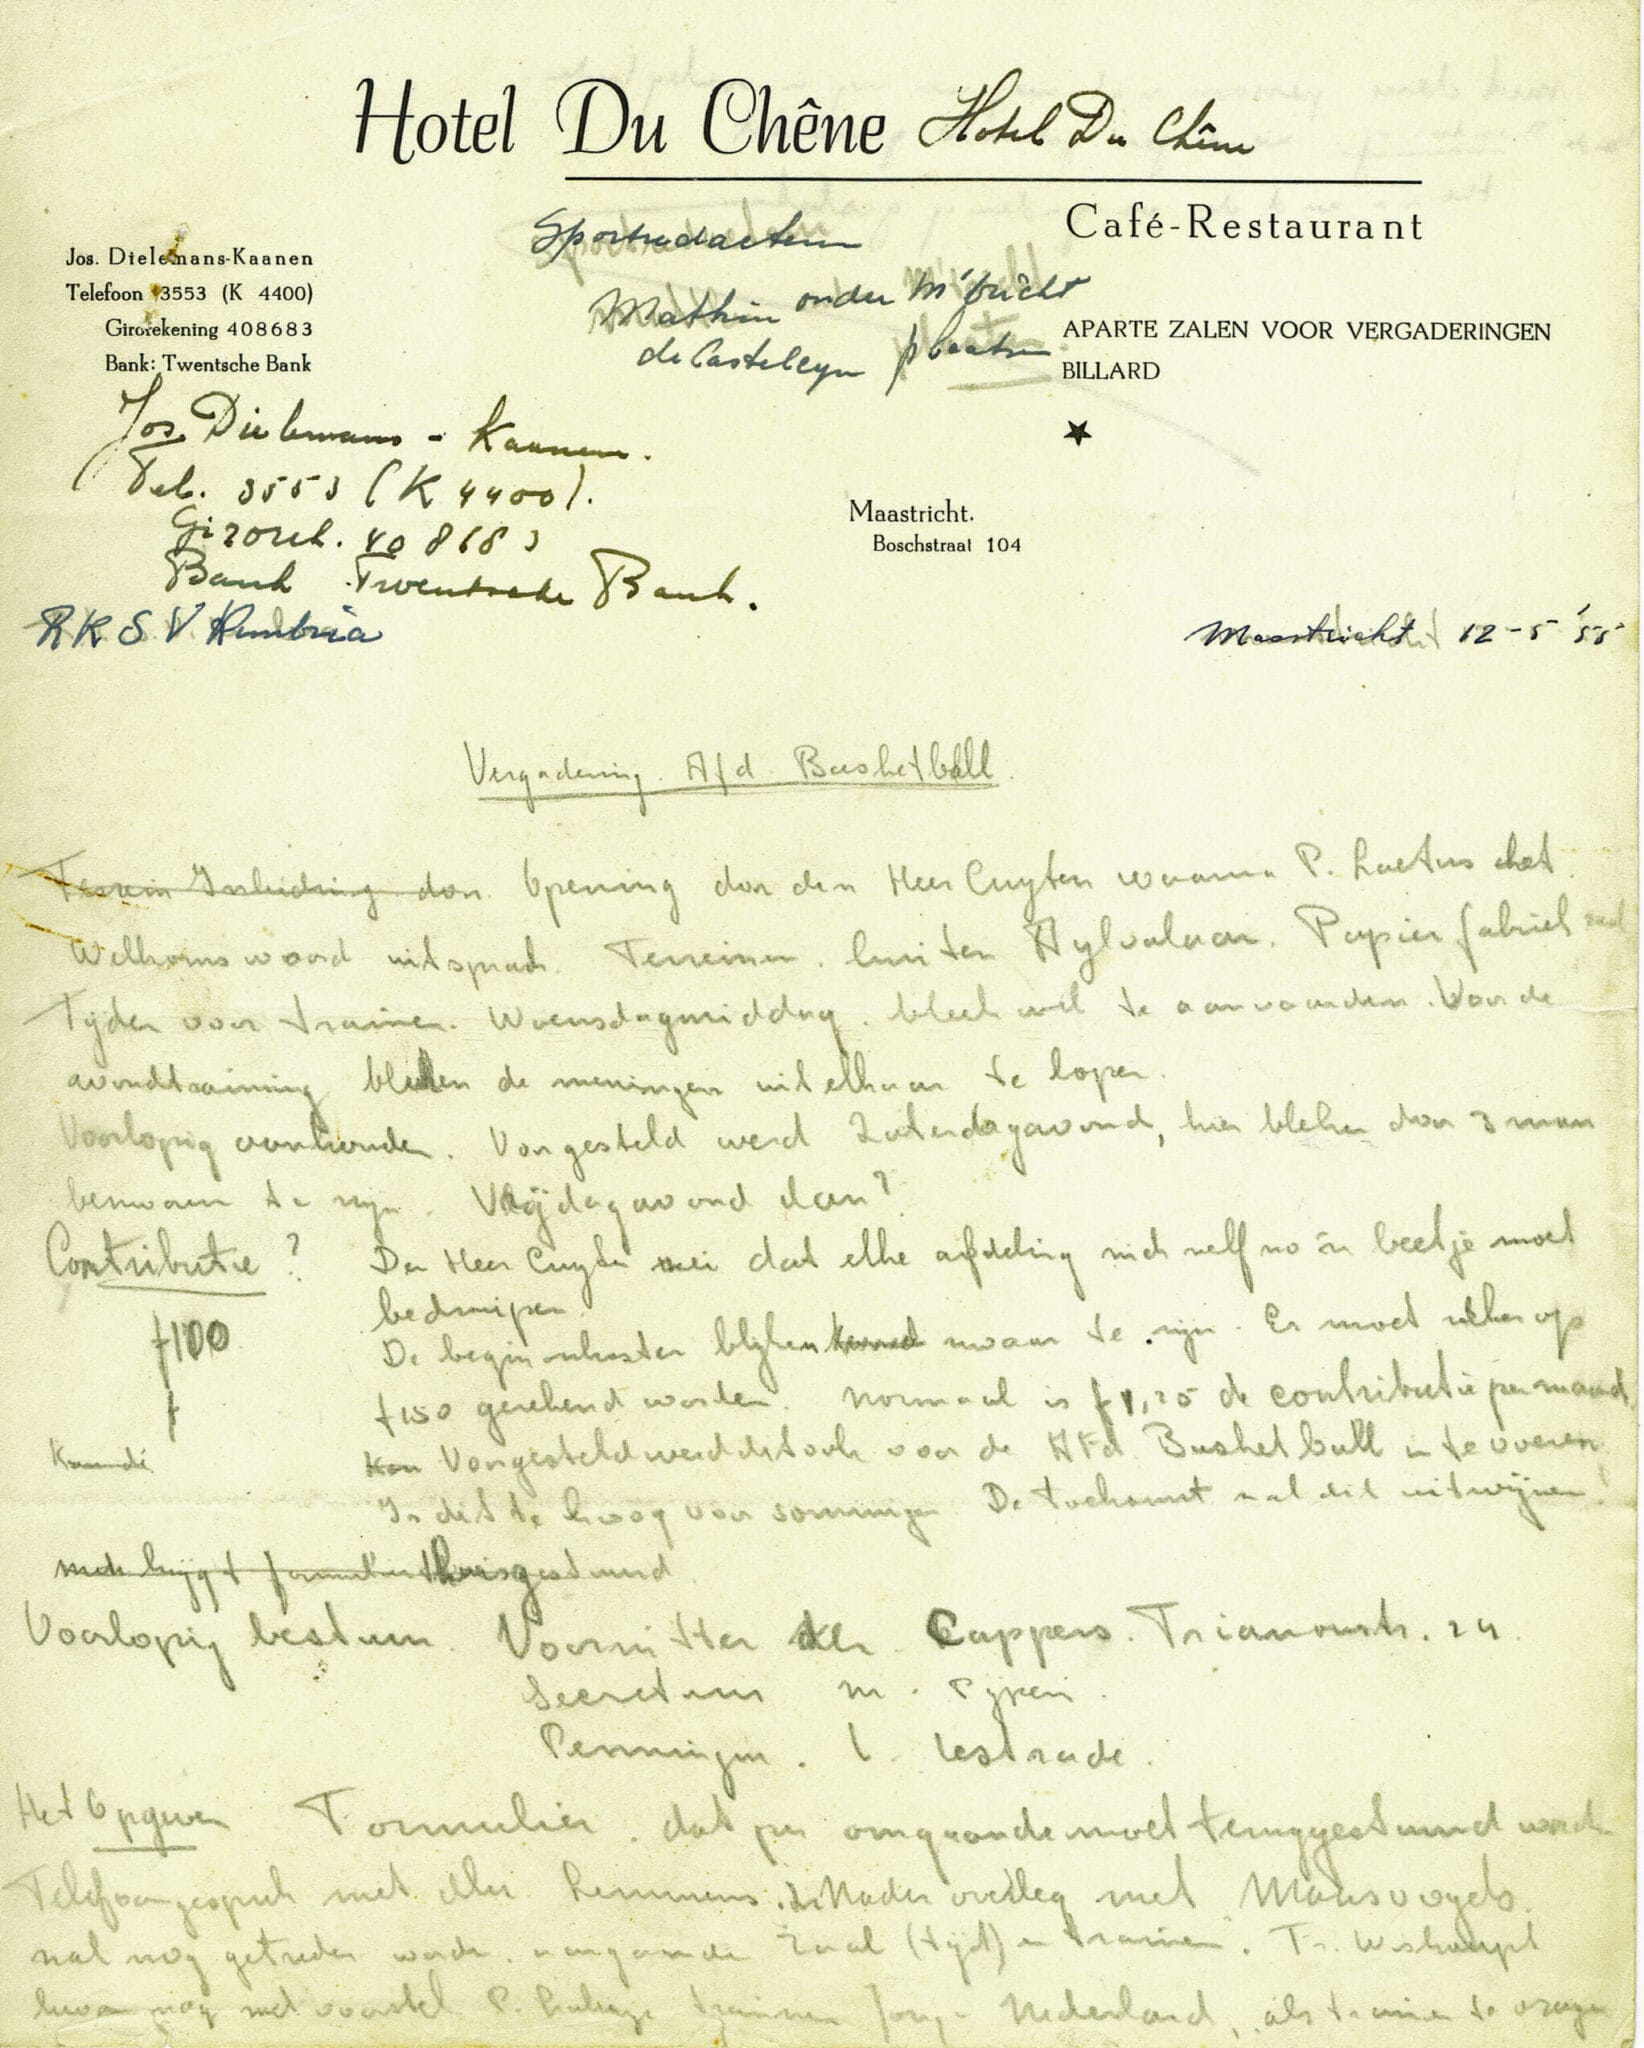 Hotel Du Chêne Hotel Du Chêne
Café-Restaurant
Jos. Dielemans-Kaanen
Telefoon 3553 (K 4400)
Girorekening 408683
Bank: Twentsche Bank
Sportredacteur
Mathin onder M'tricht
de Casteleyn plaatsen
APARTE ZALEN VOOR VERGADERINGEN
BILLARD
Jos. Dielemans - Kaanen.
Tel. 3553 (K 4400).
Girorek. 408683
Bank Twentsche Bank.
Maastricht.
Boschstraat 104
R K S V Rumbria
Maastricht 12-5 '55
Vergadering Afd. Basketball
Terrein Inleiding door Opening door den Heer Cuyten waarna P. het
Welkomswoord uitsprak. Terreinen. buiten Papierfabriek
Tijden voor trainen. Woensdagmiddag bleek wel te aanvaarden. Voor de
avondtraining bleken de meningen uit elkaar te lopen.
Voorlopig aanhouden. Voorgesteld werd Zaterdagavond, hier bleken door 3 man
bezwaren te zijn. Vrijdagavond dan?
Contributie? De Heer Cuyten zei dat elke afdeling zich zelf zo 'n beetje moet
bedruipen.
f100 De beginonkosten blijken zwaar te zijn. Er moet zeker op
f150 gerekend worden. Normaal is f1,25 de contributie per maand
Voorgesteld werd dit ook voor de Afd. Basketball in te voeren
Is dit te hoog voor sommigen. De toekomst zal dit uitwijzen!
men krijgt formulier thuisgestuurd
Voorlopig bestuur. Voorzitter Cappers. Trianonstr. 24.
Secretaris M. Pijpen.
Penningm. L. Lestrade.
Het Opgeven Formulier. dat per omgaande moet teruggestuurd worden
Telefoongesprek met Lemmens. Nader overleg met Maasvogels
zal nog getreden worden aangaande Zaal (tijd) en trainen.
kwam nog met voorstel P. trainer Jong Nederland, als trainer te vragen